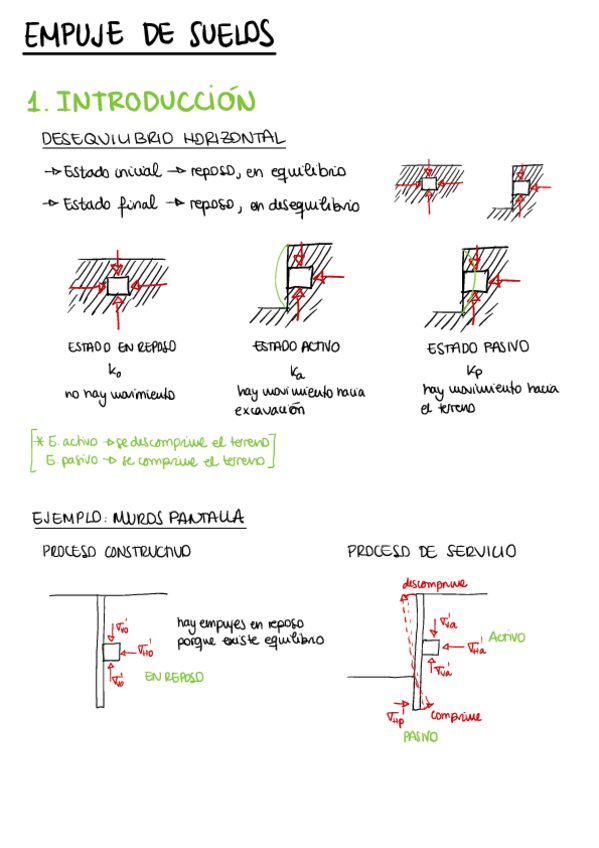 EMPUJE DE SUELOS
1. INTRODUCCIÓN
DESEQUILIBRIO HORIZONTAL
→ Estado inicial → reposo, en equilibrio
→ Estado final → reposo, en desequilibrio
ESTADO EN REPOSO
K₀
no hay movimiento
ESTADO ACTIVO
Ka
hay movimiento hacia
excavación
ESTADO PASIVO
Kp
hay movimiento hacia
el terreno
[* E. activo → se descomprime el terreno
E. pasivo → se comprime el terreno]
EJEMPLO: MUROS PANTALLA
PROCESO CONSTRUCTIVO
σ'v0
σ'H0
σ'v0
hay empujes en reposo
porque existe equilibrio
EN REPOSO
PROCESO DE SERVICIO
descomprime
σ'va
σ'Ha
ACTIVO
σ'va
σ'Hp
comprime
PASIVO